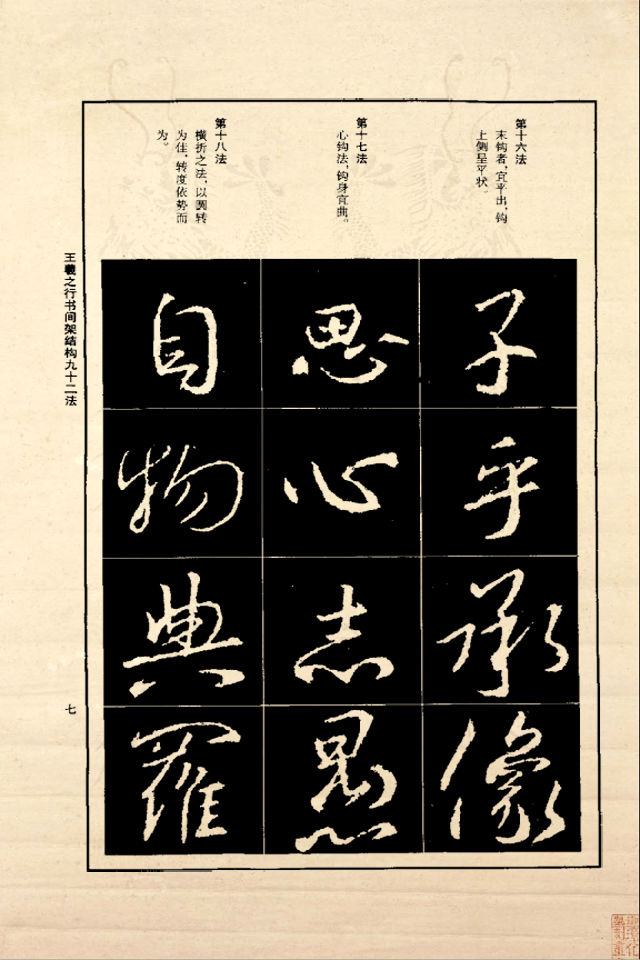 第十六法
末钩者，宜平出，钩
上侧呈平状。
第十七法
心钩法，钩身宜曲。
第十八法
横折之法，以圆转
为佳，转度依势而
为。
子
乎
承
像
思
心
志
愚
自
物
典
罗
王羲之行书间架结构九十二法
七